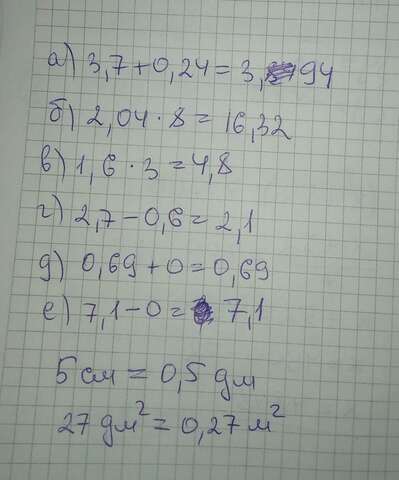 а) 3,7+0,24=3,94
б) 2,04·8=16,32
в) 1,6·3=4,8
г) 2,7-0,6=2,1
д) 0,69+0=0,69
е) 7,1-0=7,1
5 см = 0,5 дм
27 дм²=0,27 м²